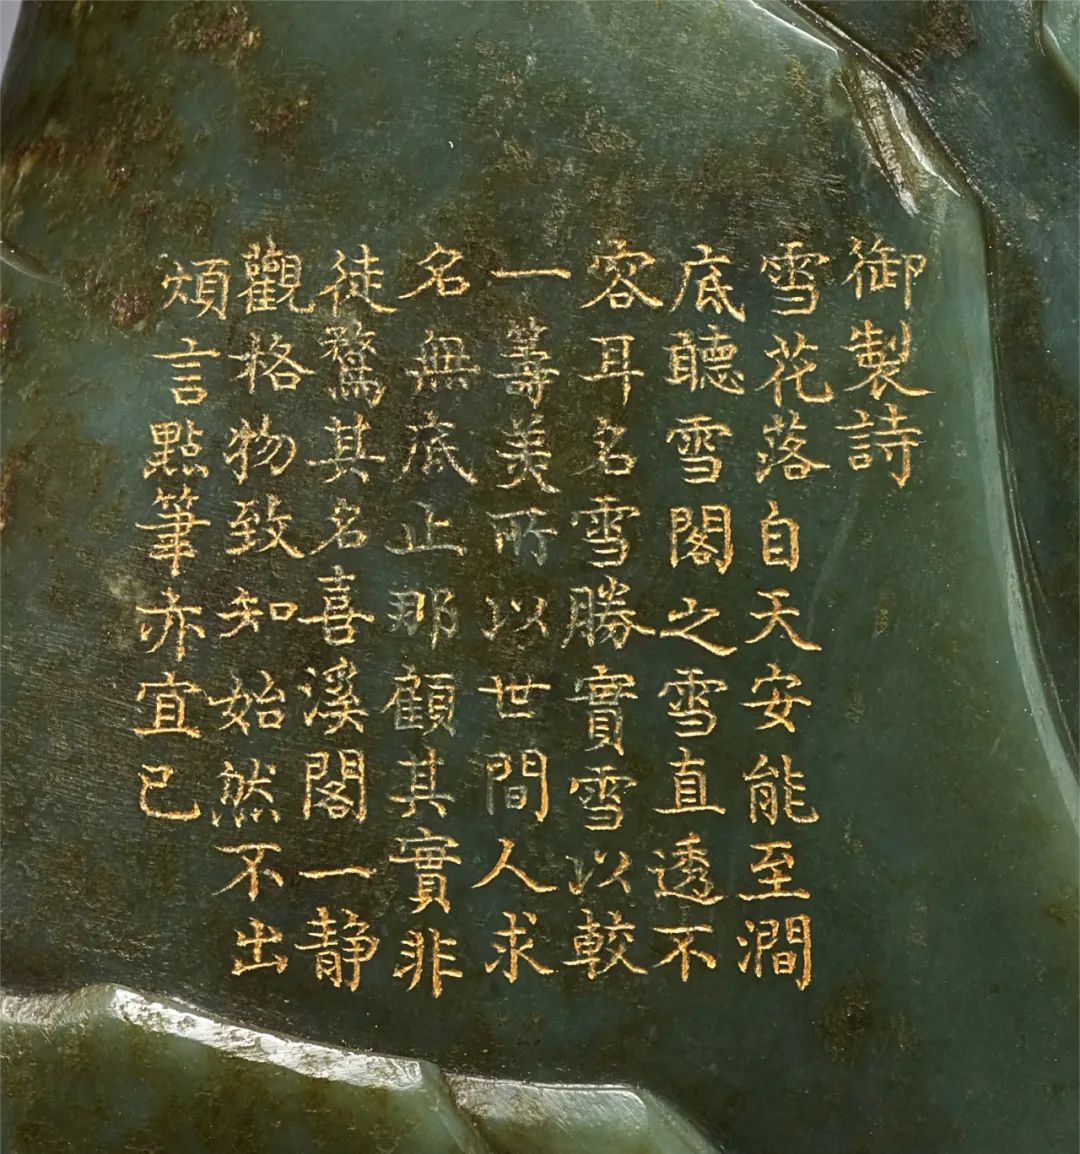 御製詩
雪花落自天安能至澗
底聽雪閣之雪直透不
容耳名雪勝實雪以較
一籌美所以世間人求
名無底止那顧其實非
徒驚其名喜溪閣一静
觀格物致知始然不出
煩言㸃筆亦宜已